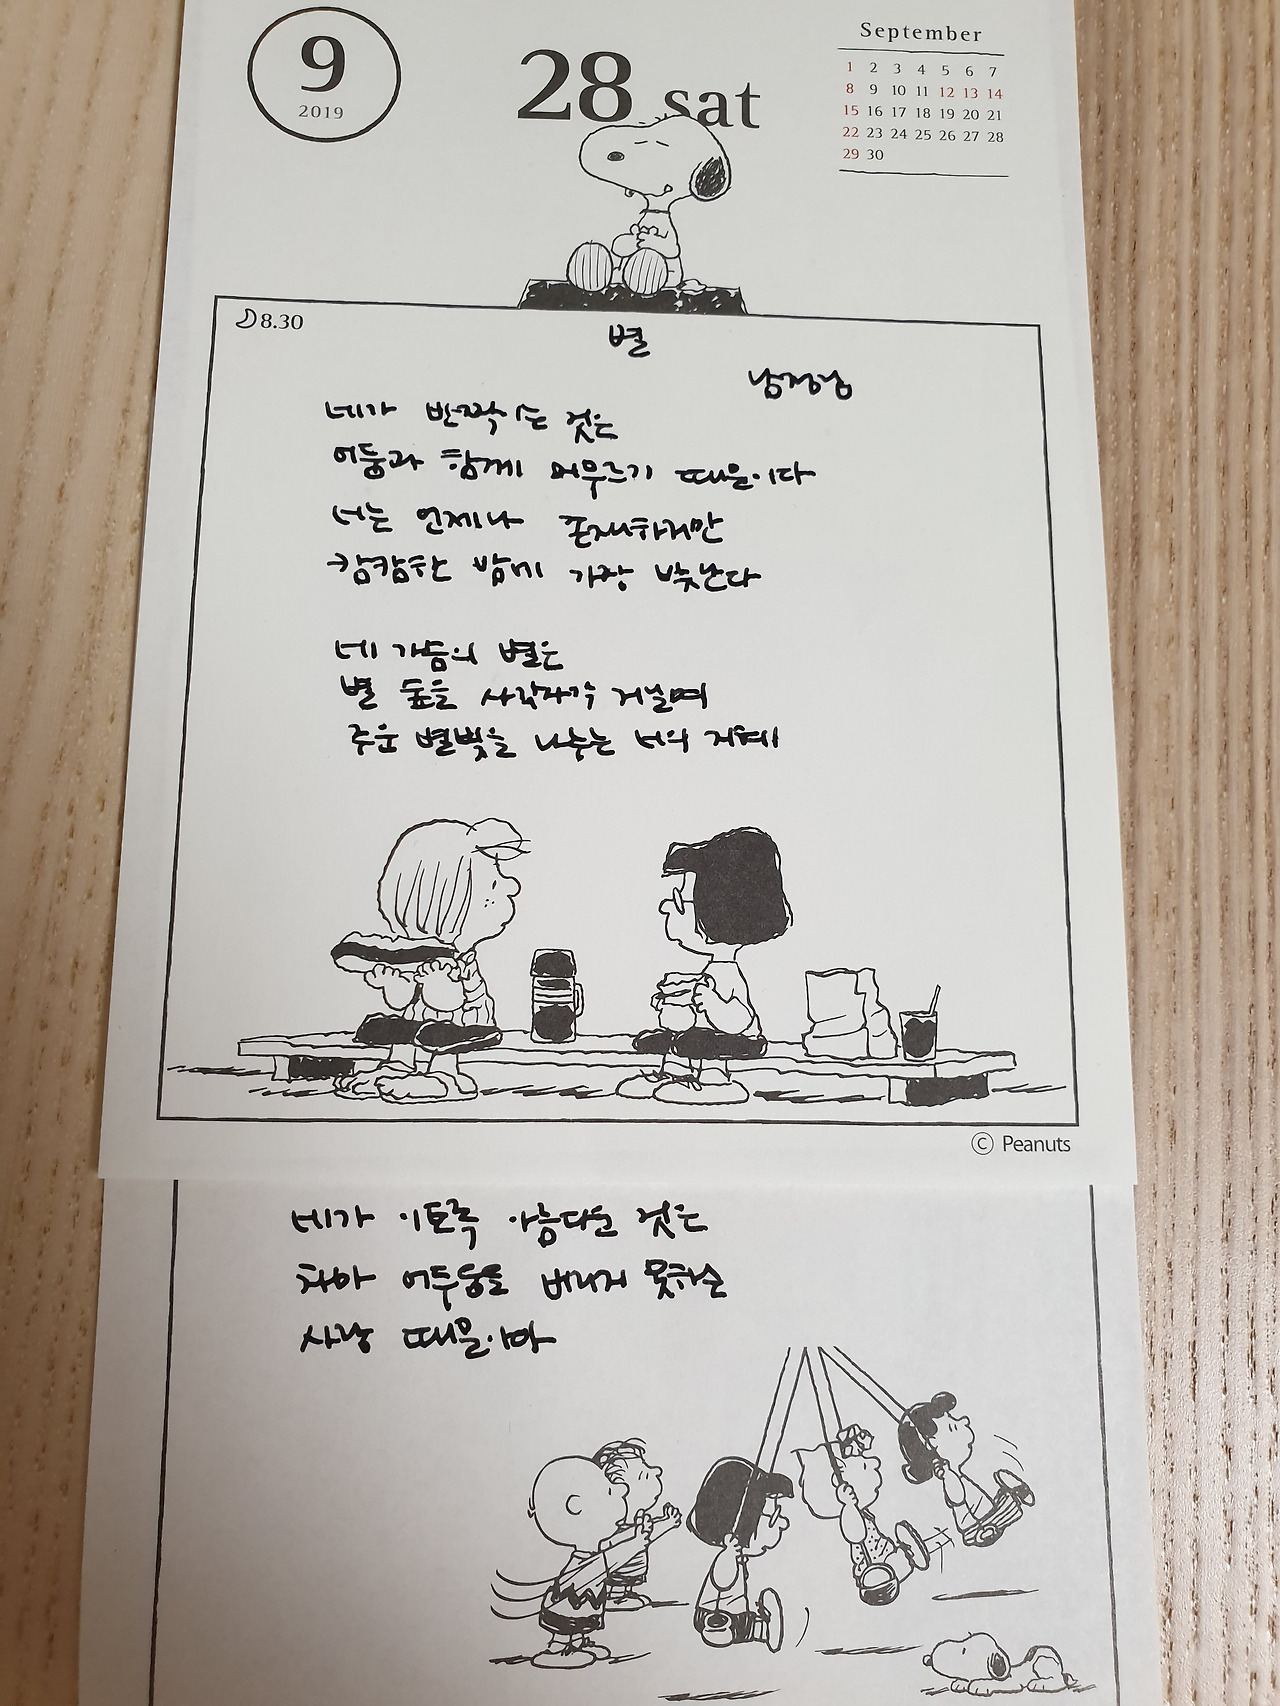 9
2019
28 sat
September
1 2 3 4 5 6 7
8 9 10 11 12 13 14
15 16 17 18 19 20 21
22 23 24 25 26 27 28
29 30
8.30
별
네가 반짝이는 것은
어둠과 함께 머무르기 때문이다
너는 언제나 존재하지만
캄캄한 밤에 가장 빛난다
네 가슴의 별은
별 숲을 사각사각 거닐며
주운 별빛을 나누는 너의 지혜
© Peanuts
네가 이토록 아름다운 것은
차마 어두움을 버리지 못하는
사랑 때문이야